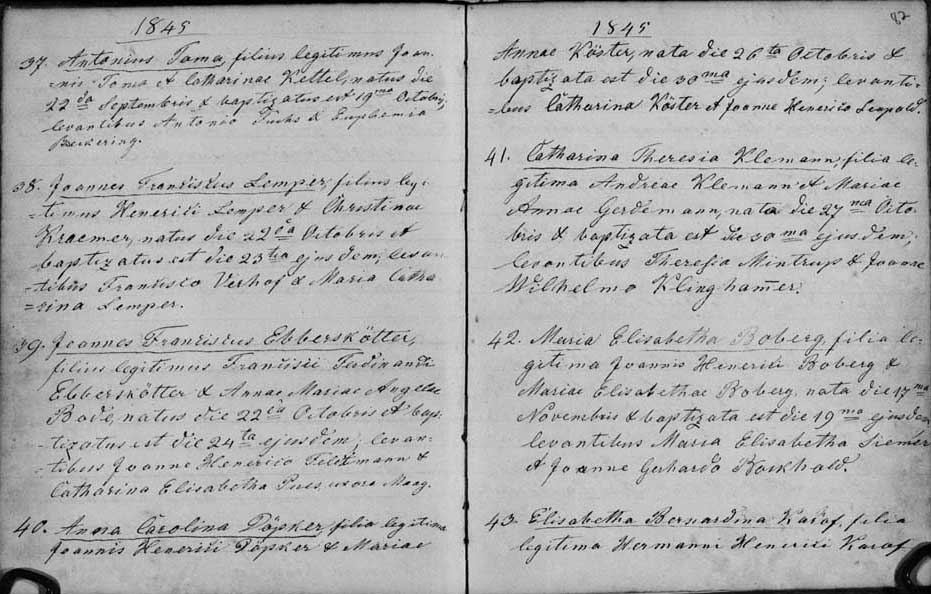 1845
37. Antonius Toma, filius legitimus Joan-
nis Toma & Catharinae Kettel, natus die
22da Septembris & baptizatus est 19ma Octobris;
levantibus Antonio Fuchs & Euphemia
Beckering.
38. Joannes Franciscus Lemper, filius legi-
=timus Henerici Lemper & Christinae
Kraemer, natus die 22da Octobris et
baptizatus est die 23tia ejusdem; levan-
=tibus Francisco Verhof & Maria Catha-
=rina Lemper.
39. Joannes Franciscus Ebberskötter,
filius legitimus Francisci Ferdinandi
Ebberskötter & Annae Mariae Angelae
Bode, natus die 22da Octobris et bap-
-tizatus est die 24ta ejusdem; levan-
-tibus Joanne Henerico Feldmann &
Catharina Elisabetha Pues, uxore Maag.
40. Anna Carolina Döpker, filia legitima
Joannis Henerici Döpker & Mariae
82
1845
Annae Köster, nata die 26ta Octobris &
baptizata est die 30ma ejusdem; levanti-
=bus Catharina Köster et Joanne Henerico Leopold.
41. Catharina Theresia Klemann, filia le-
gitima Andreae Klemann et Mariae
Annae Gerdemann, nata die 27ma Octo-
bris & baptizata est die 30ma ejusdem;
levantibus Theresia Mintrup & Joanne
Wilhelmo Klinghamer.
42. Maria Elisabetha Boberg, filia le-
gitima Joannis Henerici Boberg &
Mariae Elisabethae Boberg, nata die 17ma
Novembris & baptizata est die 19ma ejusdem
levantibus Maria Elisabetha Siemer
et Joanne Gerhardo Bockhold.
43. Elisabetha Bernardina Karof, filia
legitima Hermanni Henerici Karof